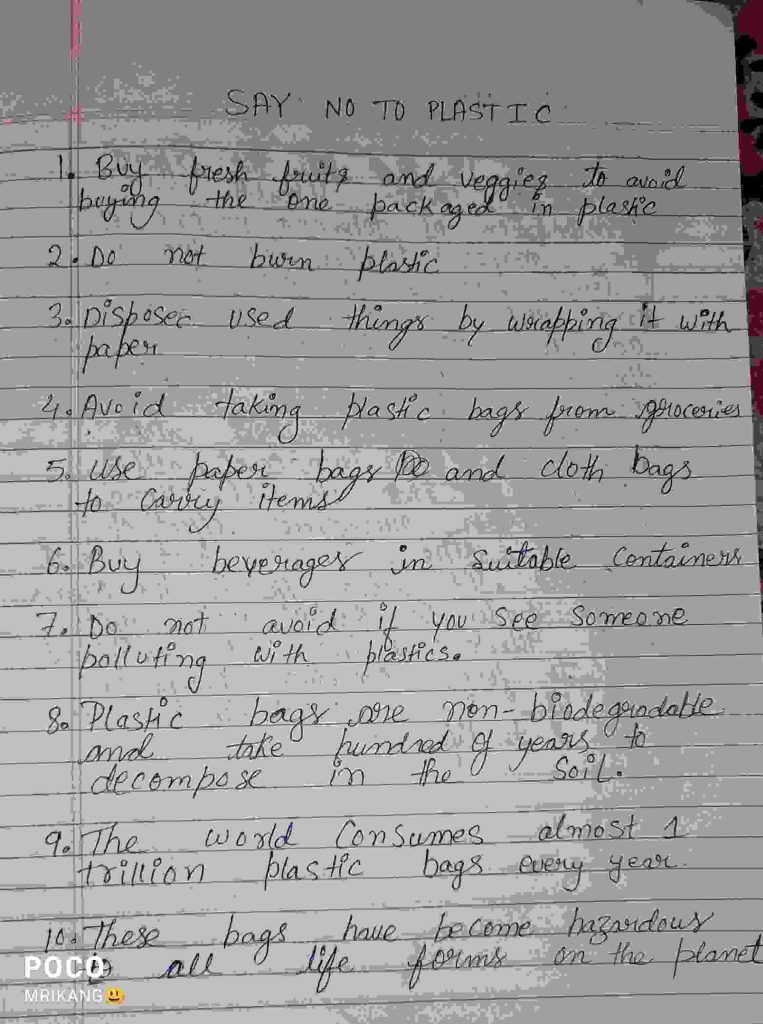 SAY NO TO PLASTIC
1. Buy fresh fruits and veggies to avoid
buying the one packaged in plastic
2. Do not burn plastic
3. Disposee used things by wrapping it with
paper
4. Avoid taking plastic bags from groceries
5. Use paper bags and cloth bags
to carry items
6. Buy beverages in suitable containers
7. Do not avoid if you see someone
polluting with plastics.
8. Plastic bags are non-biodegradable
and take hundred of years to
decompose in the soil.
9. The world consumes almost 1
trillion plastic bags every year.
10. These bags have become hazardous
all life forms on the planet
POCO
MRIKANG😃